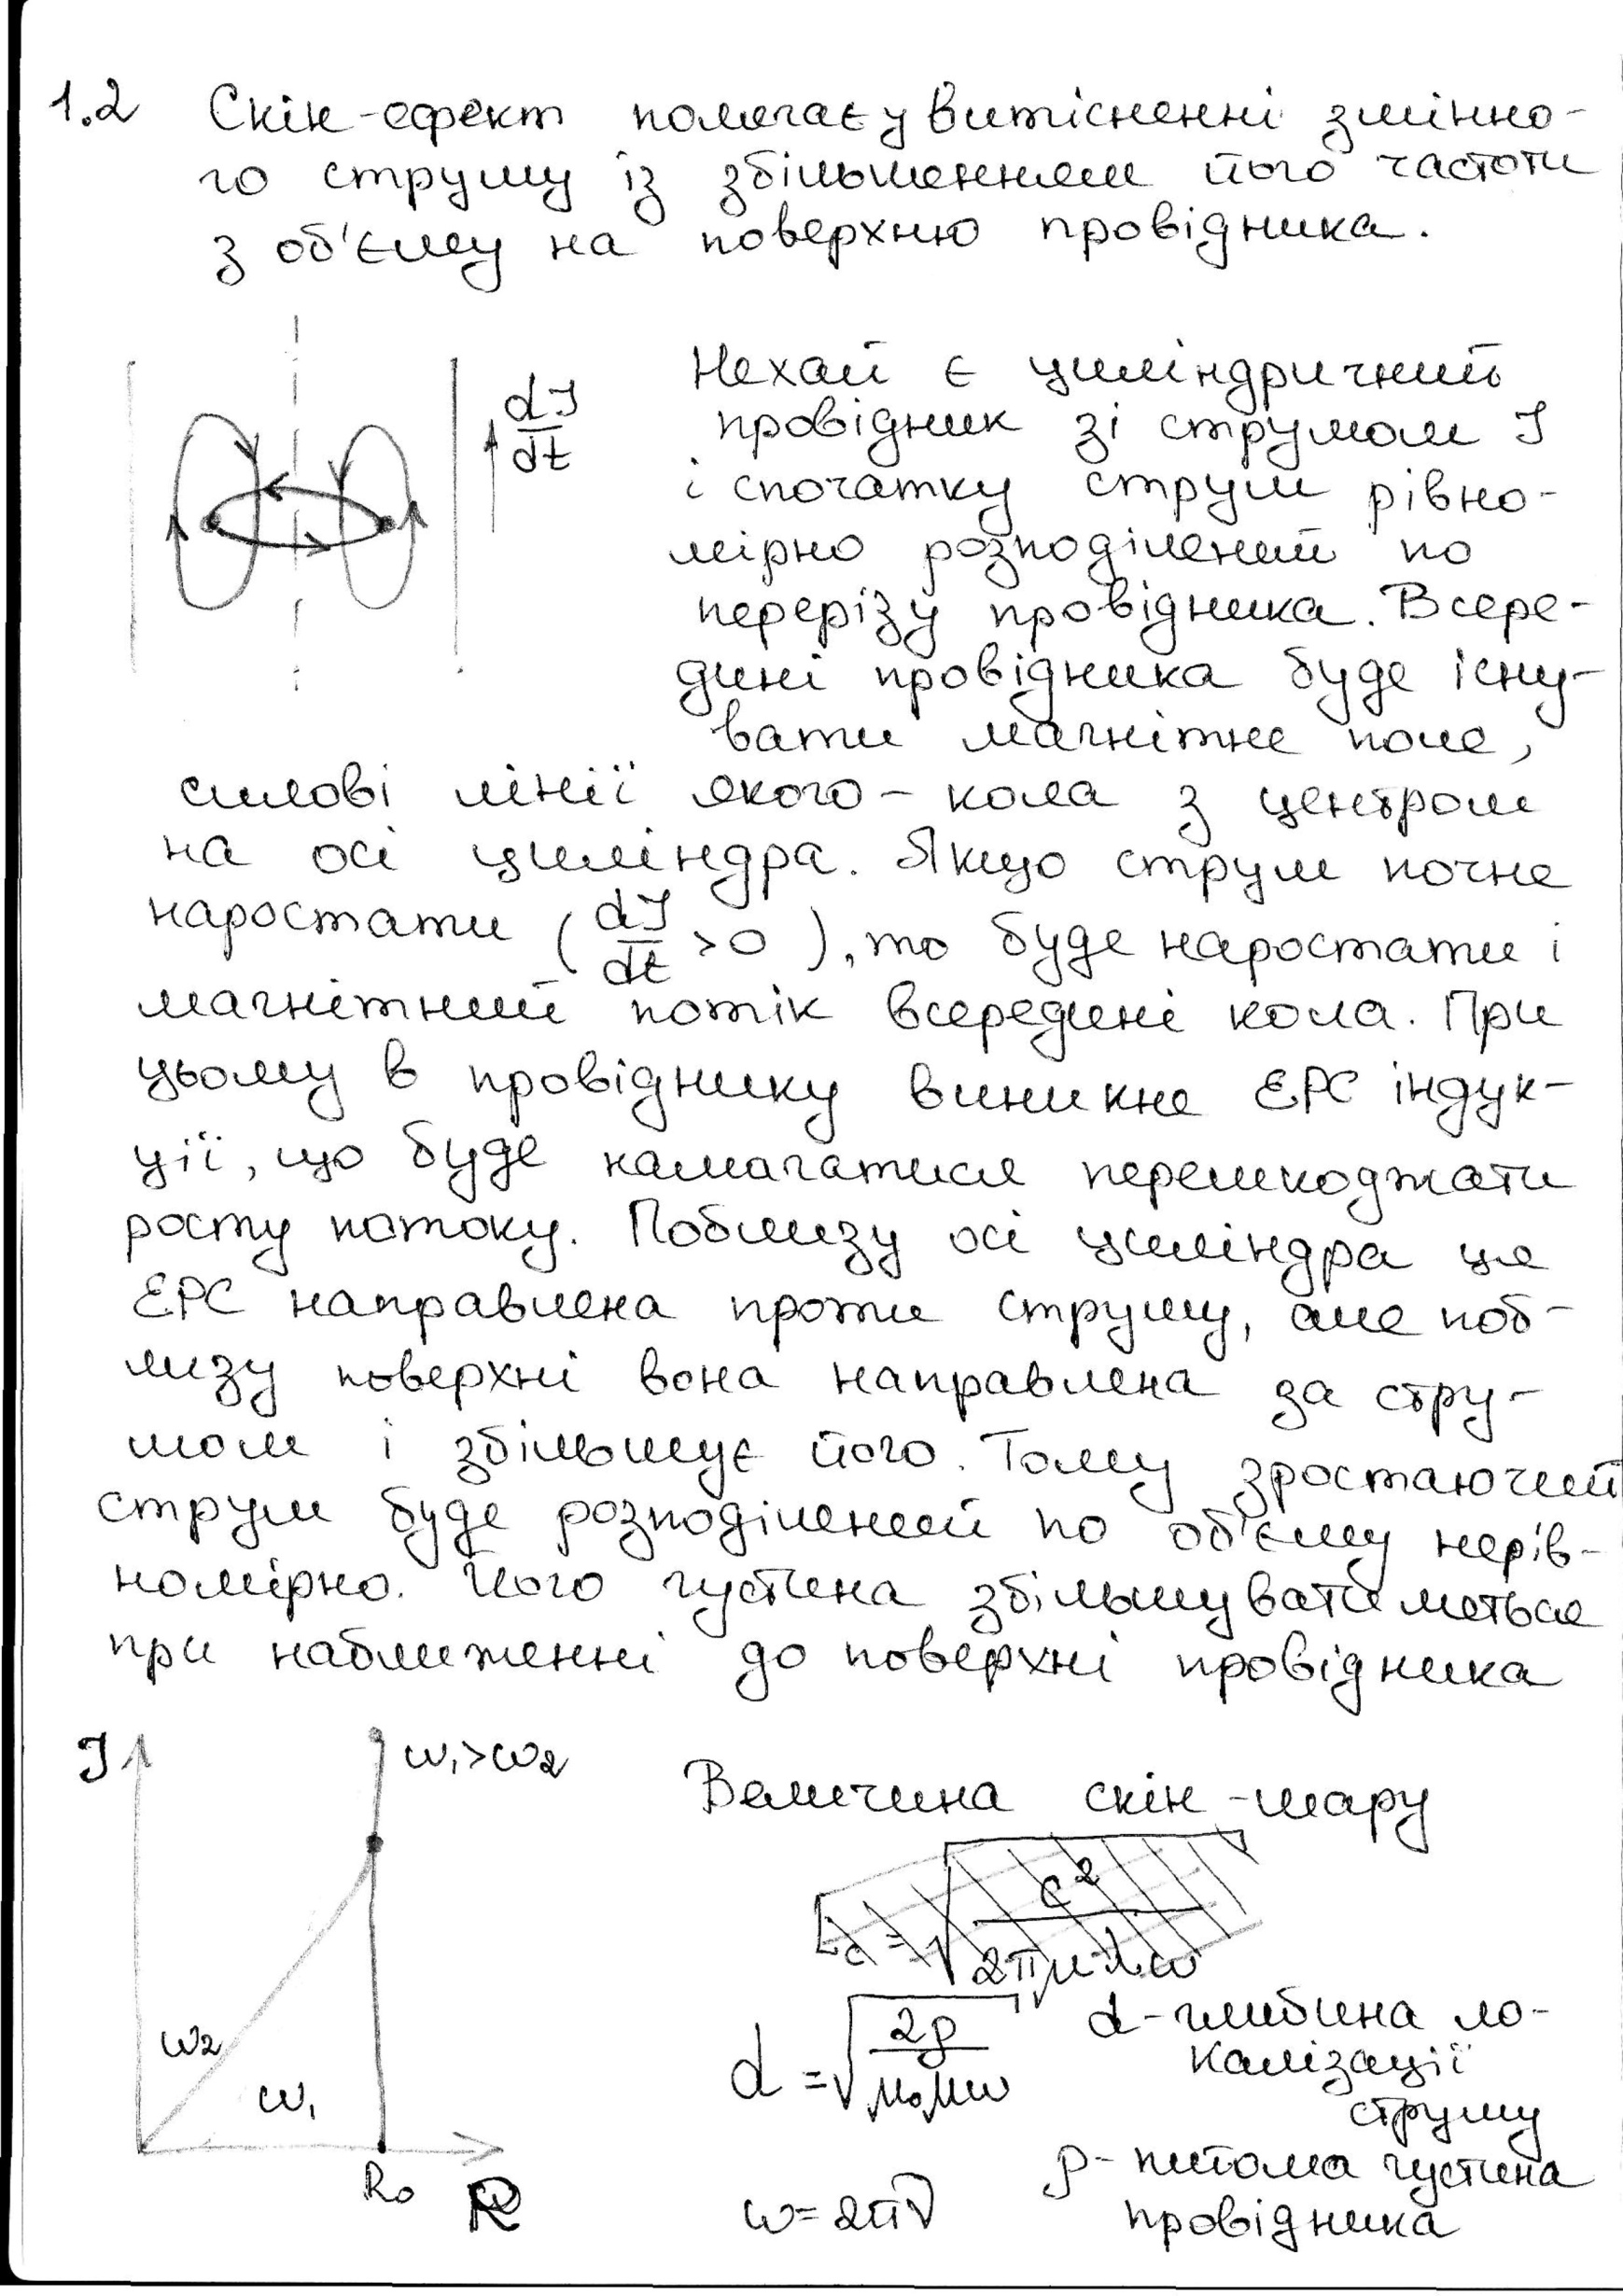 1.2 Скін-ефект полягає у витісненні змінно-
го струму із збільшенням його частоти
з об'єму на поверхню провідника.
dI
dt
Нехай є циліндричний
провідник зі струмом I
і спочатку струм рівно-
мірно розподілений по
перерізу провідника. Всере-
дині провідника буде існу-
вати магнітне поле,
силові лінії якого - кола з центром
на осі циліндра. Якщо струм почне
наростати (dI/dt > 0), то буде наростати і
магнітний потік всередині кола. При
цьому в провіднику виникне ЕРС індук-
ції, що буде намагатися перешкоджати
росту потоку. Поблизу осі циліндра ця
ЕРС направлена проти струму, але поб-
лизу поверхні вона направлена за стру-
мом і збільшує його. Тому зростаючий
струм буде розподілений по об'єму нерів-
номірно. Його густина збільшуватиметься
при наближенні до поверхні провідника
I
ω₁>ω₂
ω₂
ω₁
R₀
R
Величина скін-шару
d = √(2ρ/μ₀μω)
d - глибина ло-
калізації
струму
ρ - питома густина
провідника
ω = 2πν